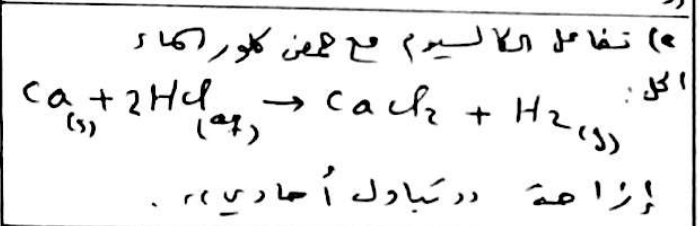 e) تفاعل الكالسيوم مع حمض كلور الماء
الحل:
Ca(s) + 2HCl(aq) → CaCl2 + H2(g)
إزاحة "تبادل أحادي".